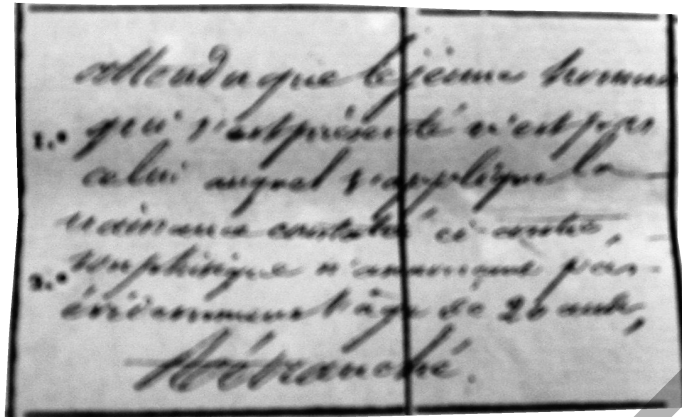 attendu que le jeune homme
1.° qui s'est présenté n'est pas
celui auquel s'applique la
naissance constatée ci-contre,
2.° son phisique n'annonçant pas
évidemment l'âge de 20 ans,
Retranché.